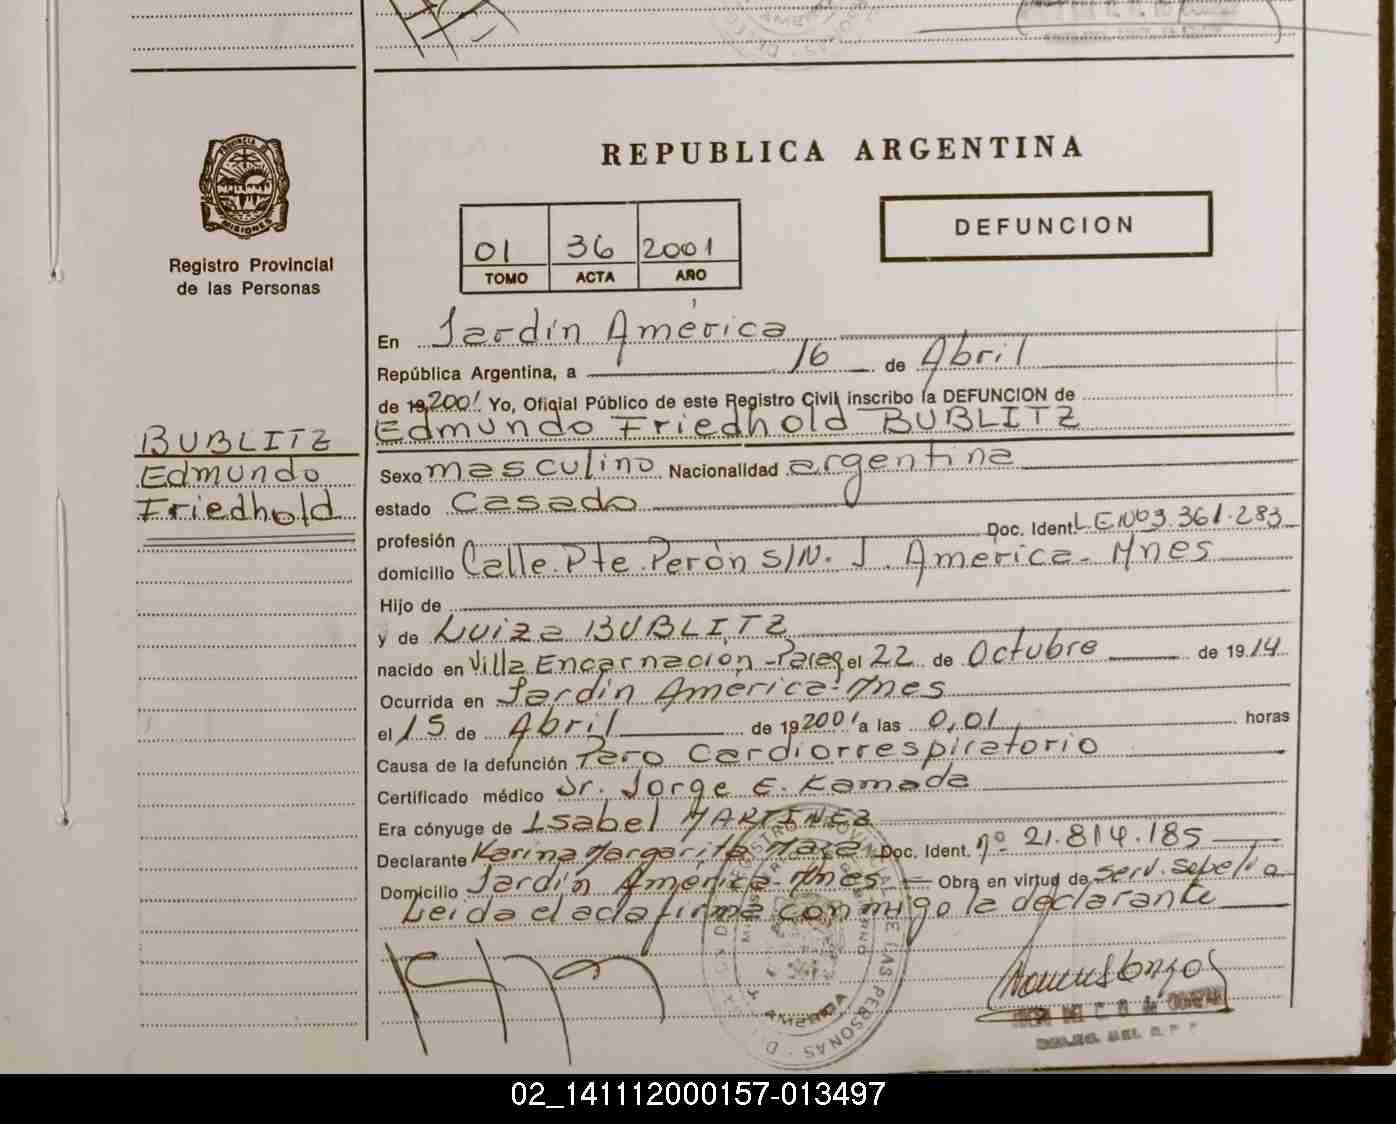 PROVINCIA DE
MISIONES
Registro Provincial
de las Personas
REPUBLICA ARGENTINA
01 36 2001
TOMO ACTA AÑO
DEFUNCION
En Jardín América
República Argentina, a 16 de Abril
de 19 2001 Yo, Oficial Público de este Registro Civil inscribo la DEFUNCION de
Edmundo Friedhold BUBLITZ
BUBLITZ
Edmundo
Friedhold
Sexo masculino Nacionalidad argentina
estado Casado
profesión Doc. Ident. L.E.Nº 3.361.283
domicilio Calle Pte. Perón S/N. J. América-Mnes
Hijo de
y de Luiza BUBLITZ
nacido en Villa Encarnación-Parag el 22 de Octubre de 1914
Ocurrida en Jardín América-Mnes
el 15 de Abril de 19 2001 a las 0,01 horas
Causa de la defunción Paro Cardiorrespiratorio
Certificado médico Dr. Jorge E. Kamada
Era cónyuge de Isabel MARTINEZ
Declarante Karina Margarita Maza Doc. Ident. nº 21.814.185
Domicilio Jardín América-Mnes Obra en virtud de serv. sepelio
Leida el acta firma conmigo la declarante
REGISTRO PROVINCIAL DE LAS PERSONAS
J. AMERICA
02_141112000157-013497